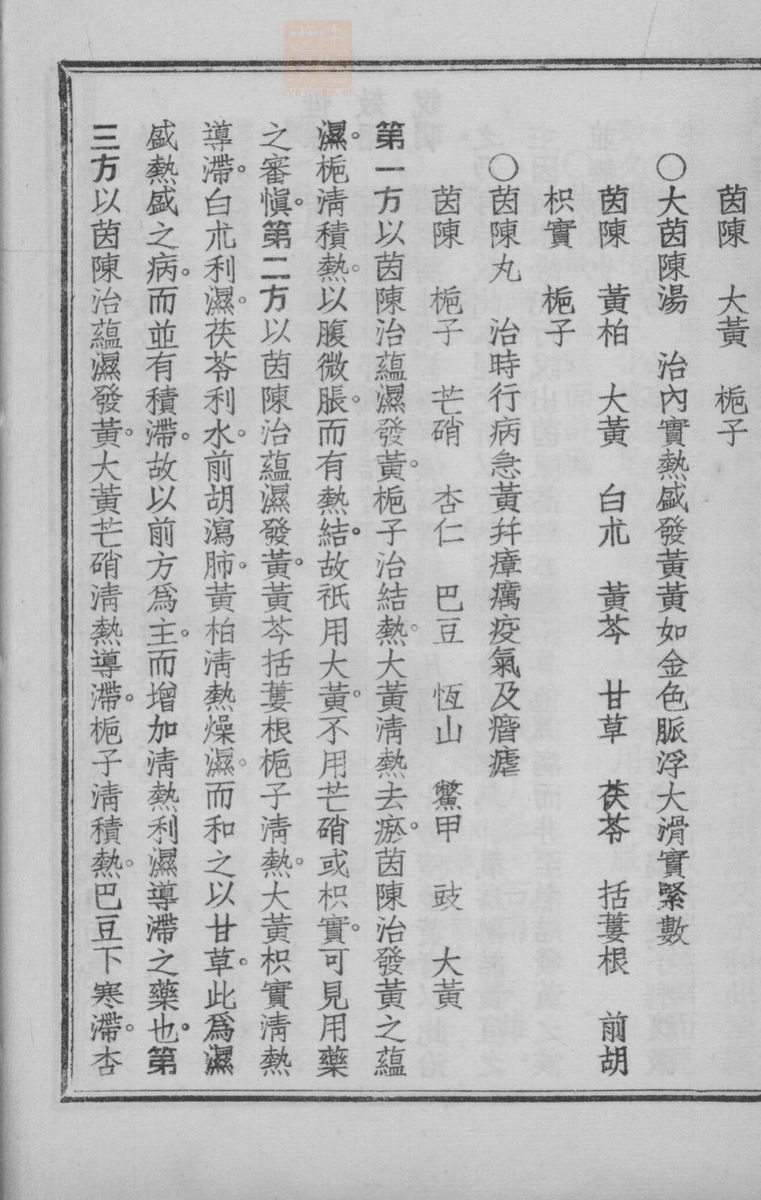 茵陳　大黃　梔子
〇大茵陳湯　治內實熱盛發黃黃如金色脈浮大滑實緊數
茵陳　黃柏　大黃　白朮　黃芩　甘草　茯苓　括蔞根　前胡
枳實　梔子
〇茵陳丸　治時行病急黃幷瘴癘疫氣及痻瘧
茵陳　梔子　芒硝　杏仁　巴豆　恆山　鱉甲　豉　大黃
第一方以茵陳治蘊濕發黃。梔子治結熱。大黃淸熱去瘀。茵陳治發黃之蘊
濕。梔淸積熱。以腹微脹。而有熱結。故祇用大黃。不用芒硝或枳實。可見用藥
之審愼。第二方以茵陳治蘊濕發黃。黃芩括蔞根梔子淸熱。大黃枳實淸熱
導滯。白朮利濕。茯苓利水。前胡瀉肺。黃柏淸熱燥濕。而和之以甘草。此爲濕
盛熱盛之病。而並有積滯。故以前方爲主。而增加淸熱利濕導滯之藥也。第
三方以茵陳治蘊濕發黃。大黃芒硝淸熱導滯。梔子淸積熱。巴豆下寒滯。杏